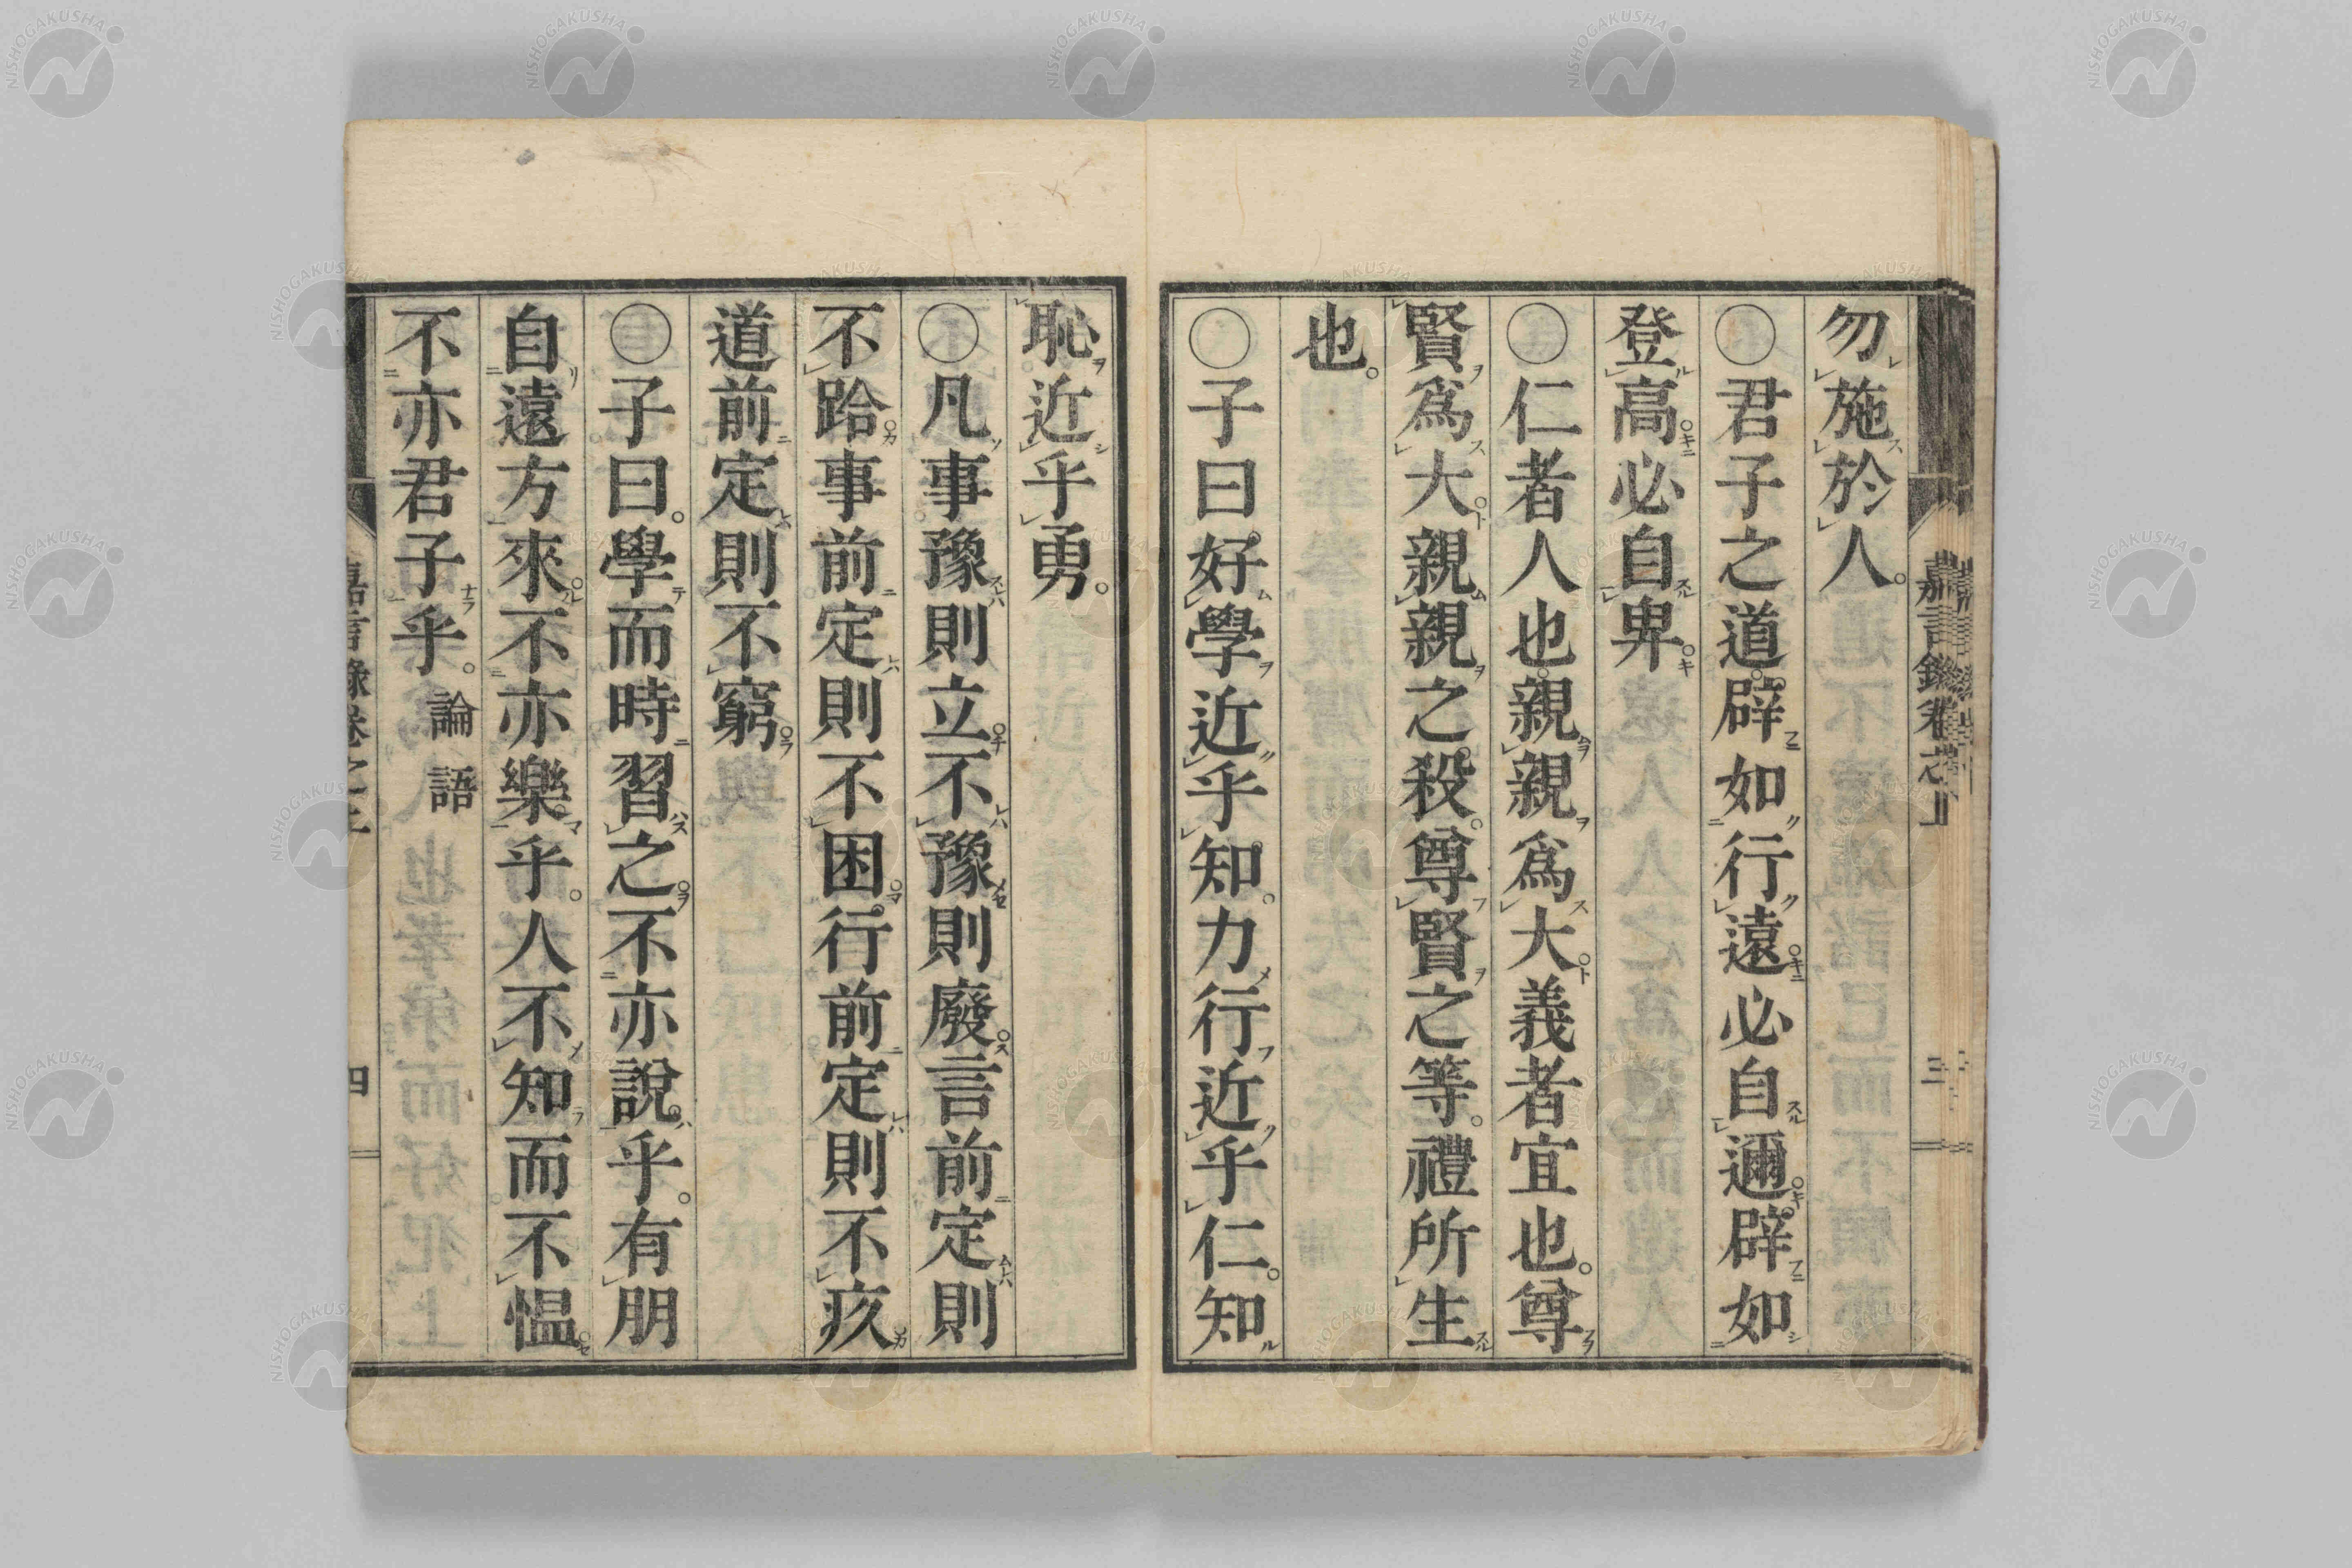 勿施於人。
○君子之道。辟如行遠必自邇。辟如
登高必自卑
○仁者人也。親親爲大義者宜也。尊
賢爲大親親之殺。尊賢之等。禮所生
也。
○子曰好學近乎知。力行近乎仁。知
恥近乎勇。
○凡事豫則立不豫則廢言前定則
不跲事前定則不困。行前定則不疚
道前定則不窮
○子曰。學而時習之不亦說乎。有朋
自遠方來不亦樂乎。人不知而不慍
不亦君子乎。論語
嘉言錄卷之上
三
四
NISHOGAKUSHA